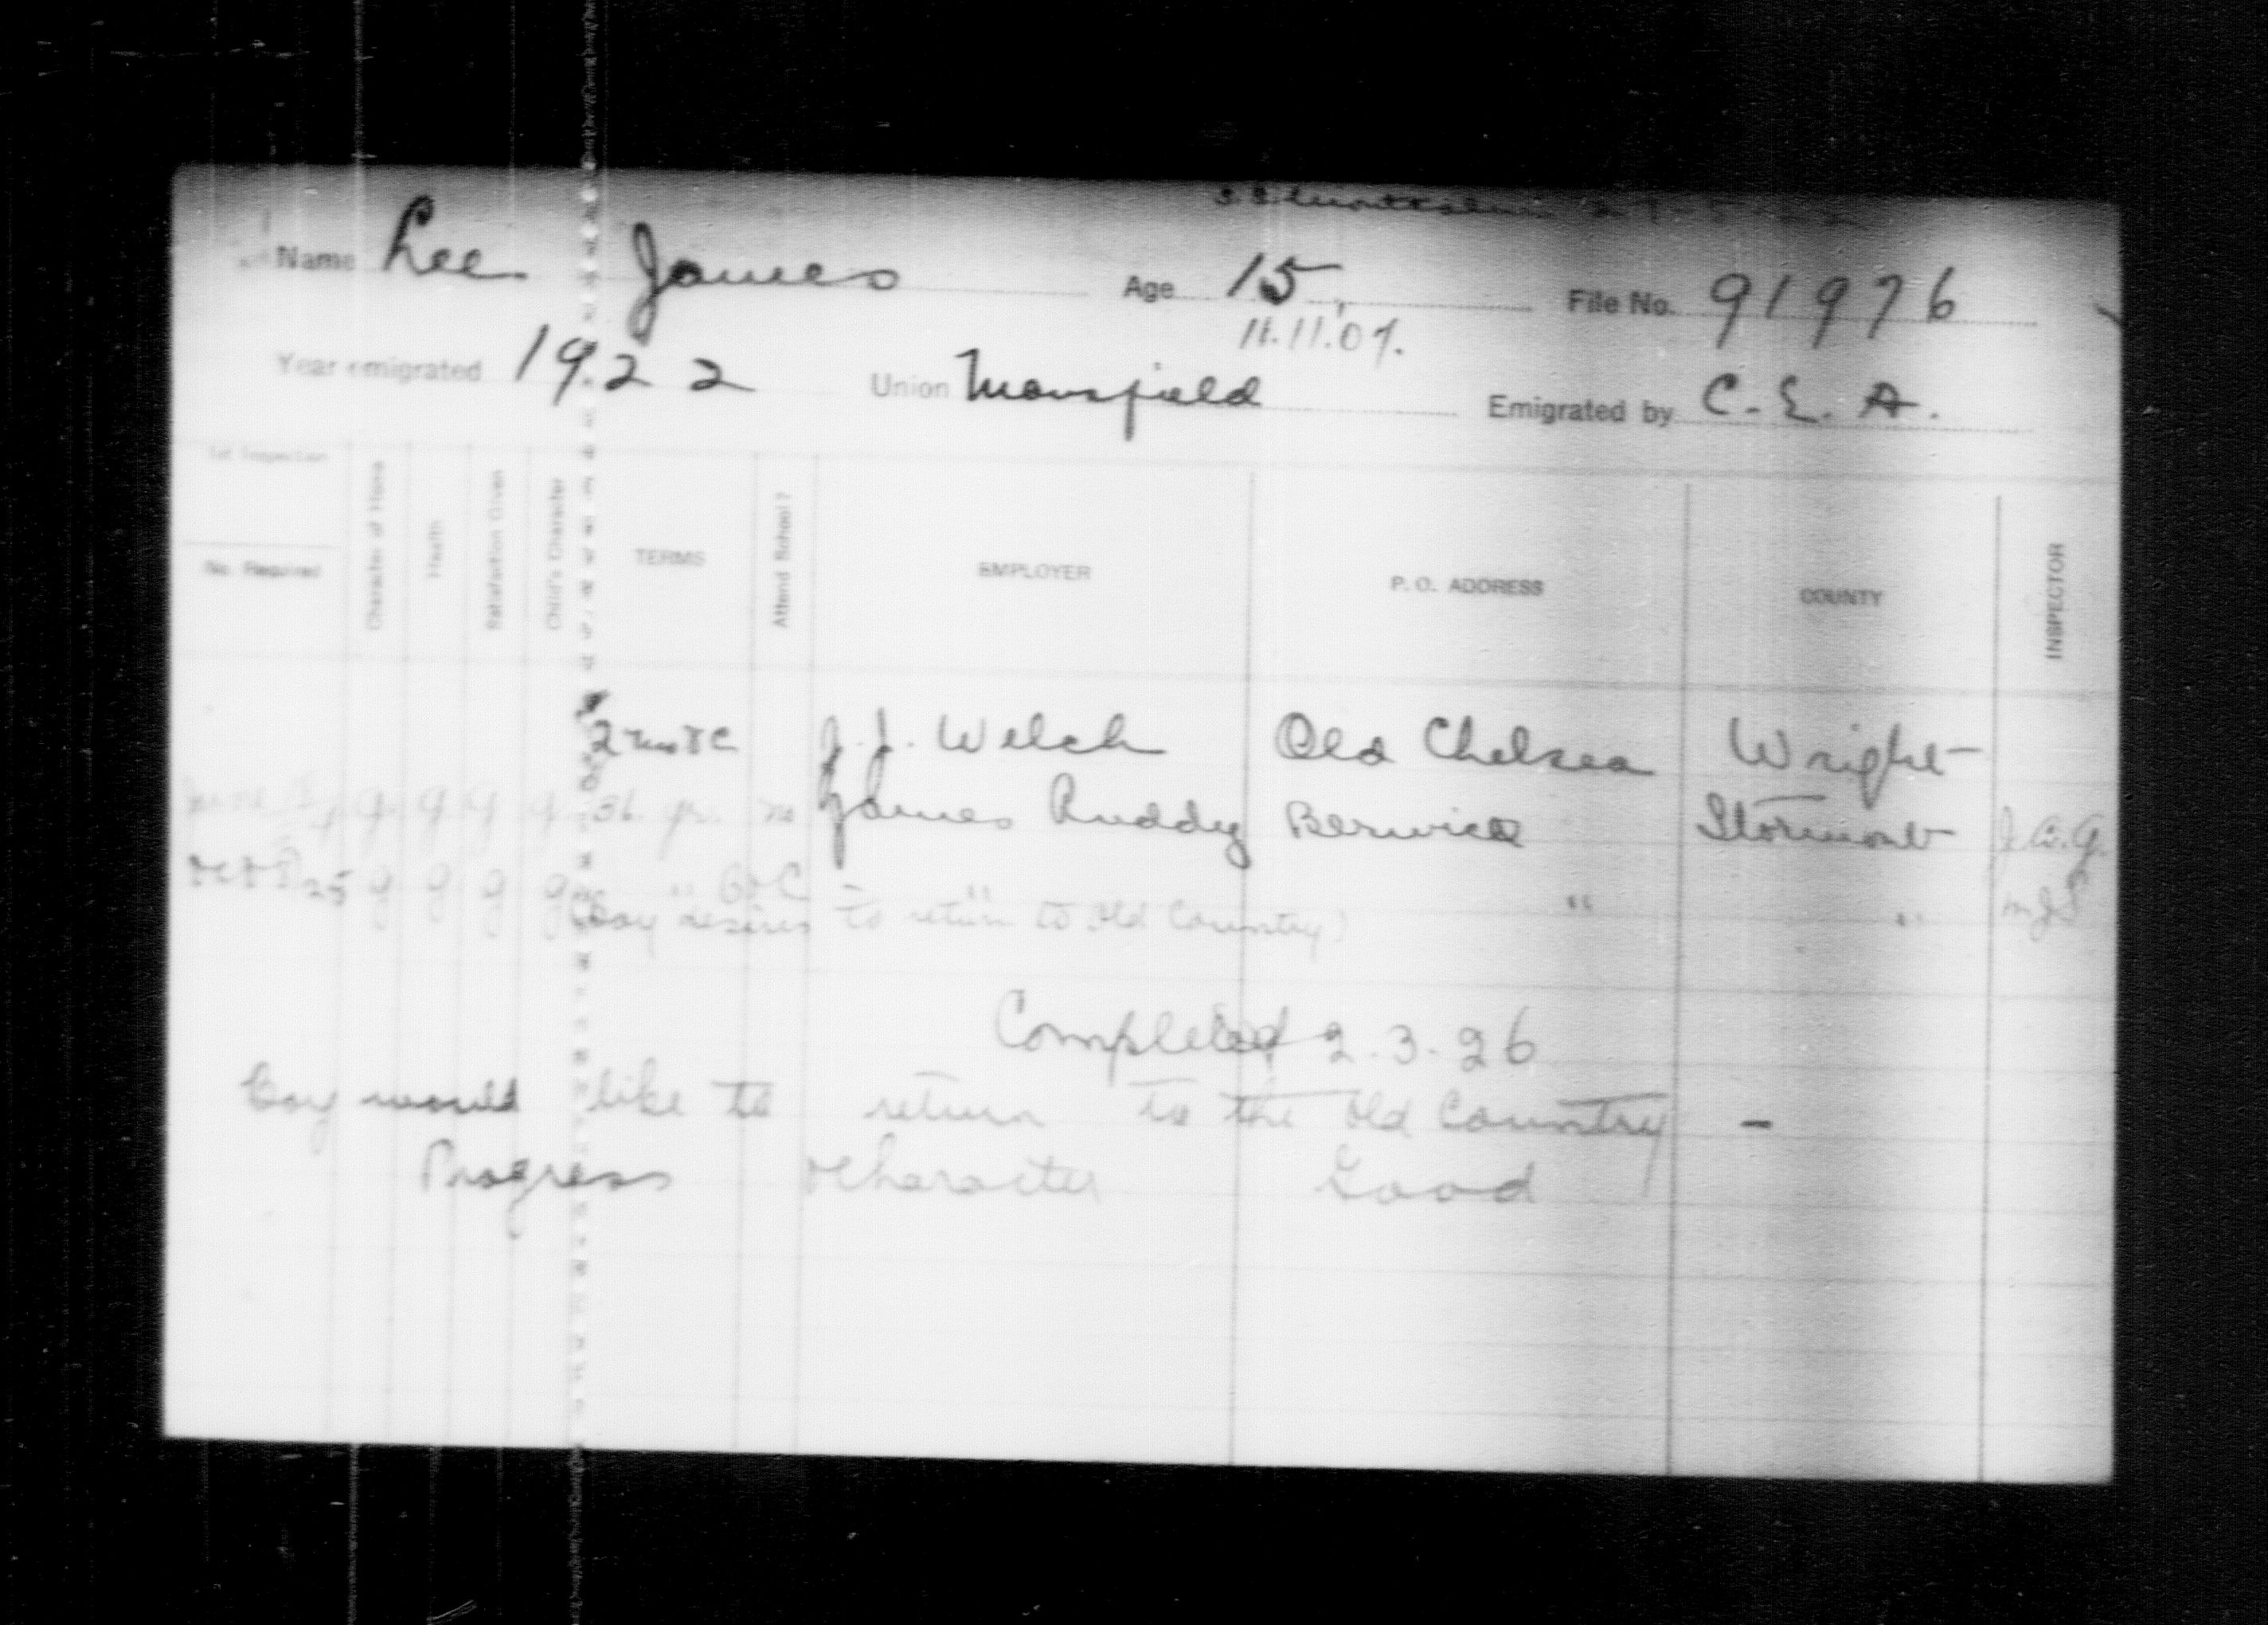 S.S. Montcalm
Name Lee James Age 15 File No. 91976
11.11.07.
Year emigrated 1922 Union Mansfield Emigrated by C. E. A.
1st Inspection
No. Required
Character of Home
Health
Satisfaction Given
Child's Character
TERMS
Attend School?
EMPLOYER
P. O. ADDRESS
COUNTY
INSPECTOR
J. J. Welch Old Chelsea Wright
g. g g g. yr. no James Ruddy Berwick Stormont
25 g g g g " " " "
(Boy desires to return to Old Country)
Completed 2.3.26
Boy would like to return to the Old Country -
Progress & Character Good